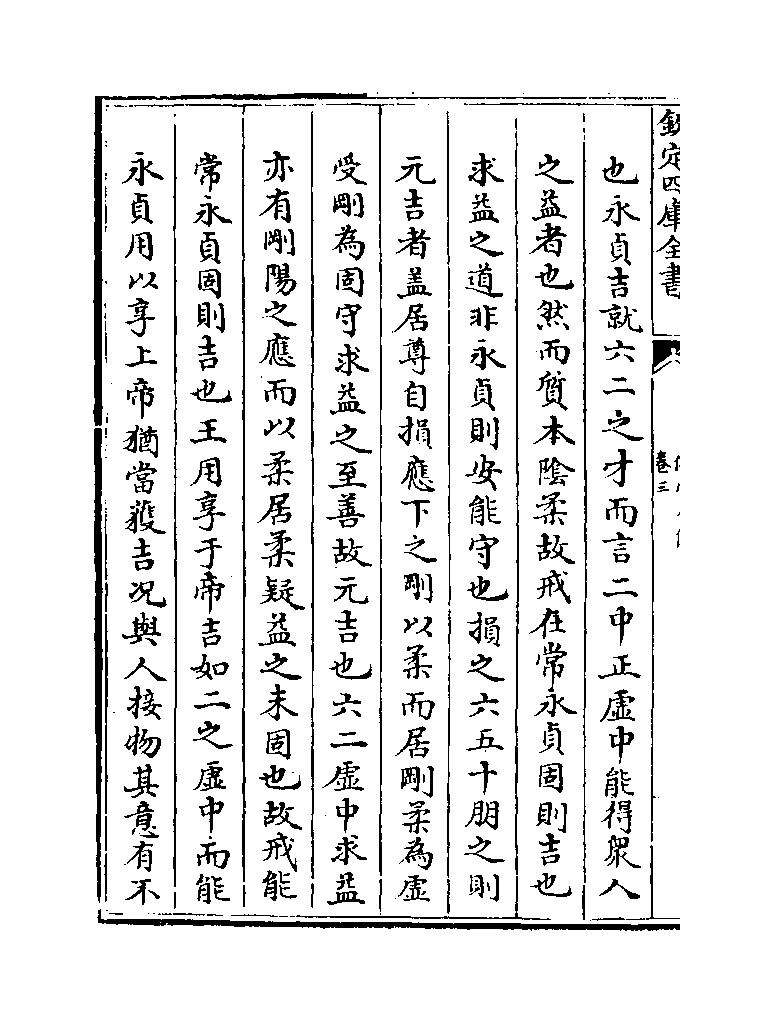 欽定四庫全書
卷三
也永貞吉就六二之才而言二中正虛中能得衆人
之益者也然而質本陰柔故戒在常永貞固則吉也
求益之道非永貞則安能守也損之六五十朋之則
元吉者盖居尊自損應下之剛以柔而居剛柔為虛
受剛為固守求益之至善故元吉也六二虛中求益
亦有剛陽之應而以柔居柔疑益之未固也故戒能
常永貞固則吉也王用享于帝吉如二之虛中而能
永貞用以享上帝猶當獲吉况與人接物其意有不